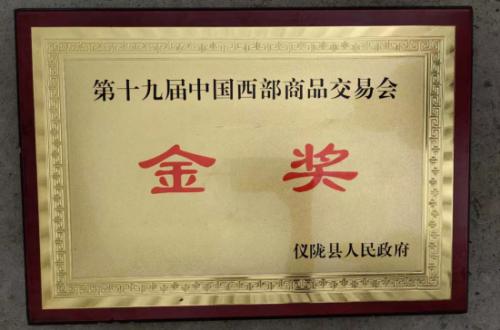 第十九届中国西部商品交易会
金奖
仪陇县人民政府